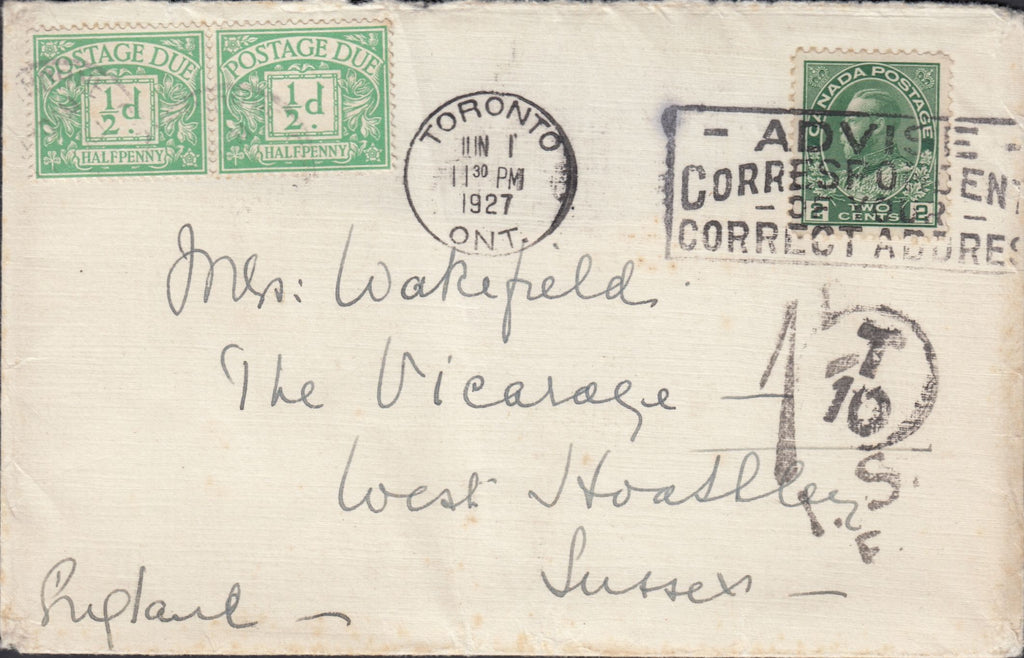 POSTAGE DUE
½d.
HALFPENNY
POSTAGE DUE
½d.
HALFPENNY
TORONTO
JUN 1
11 30 PM
1927
ONT.
CANADA POSTAGE
2 TWO CENTS 2
- ADVISE -
CORRESPONDENT
- OF YOUR -
CORRECT ADDRES
Mrs: Wakefield
The Vicarage -
West Hoathley
Sussex -
England -
1
T
10